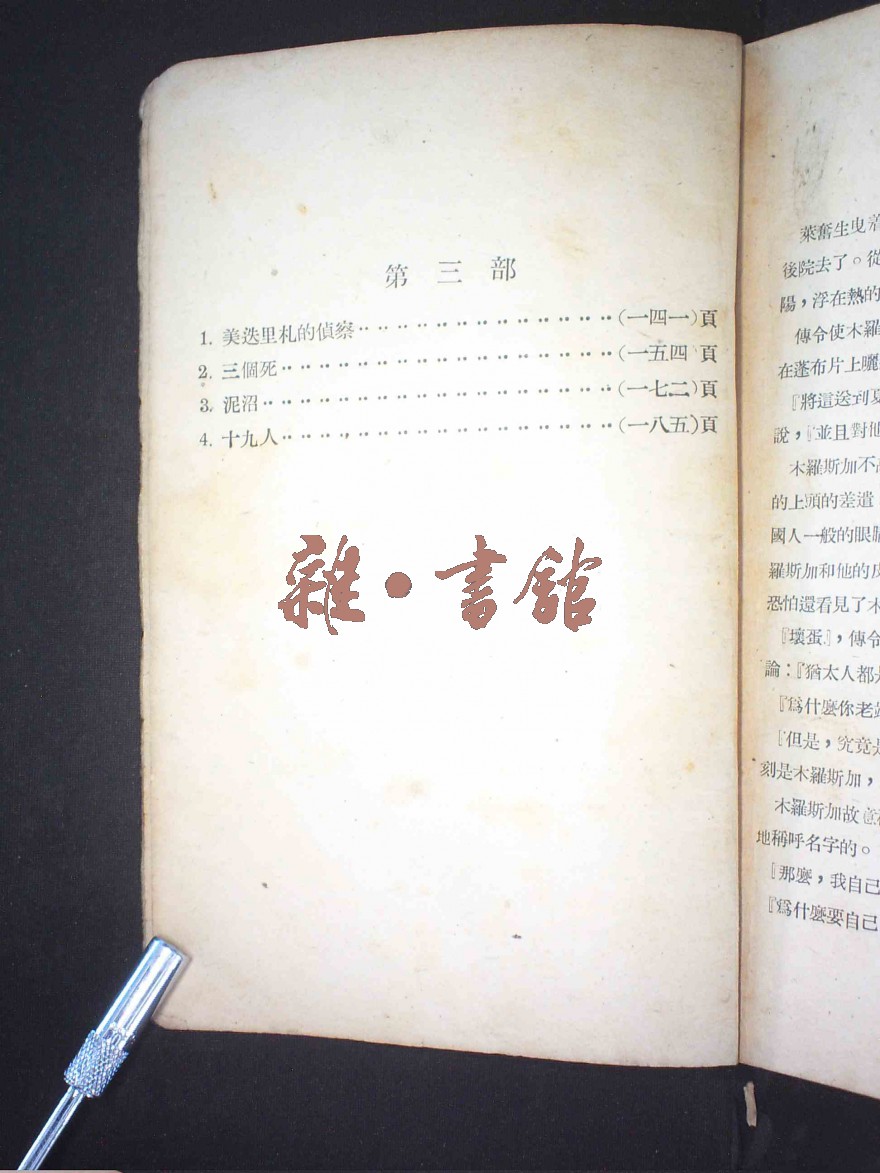 第三部
1. 美迭里札的偵察………………(一四一)頁
2. 三個死………………(一五四 頁
3. 泥沼………………(一七二)頁
4. 十九人………………(一八五)頁
雜·書館
萊奮生曳着
後院去了。從
陽，浮在熱的
傳令使木羅
在蓬布片上曬
『將這送到夏
說，『並且對他
木羅斯加不
的上頭的差遣
國人一般的眼睛
羅斯加和他的
恐怕還看見了木
『壞蛋』，傳令
論：『猶太人都是
『爲什麼你老
『但是，究竟是
刻是木羅斯加，
木羅斯加故意
地稱呼名字的。
『那麼，我自己
『爲什麼要自己